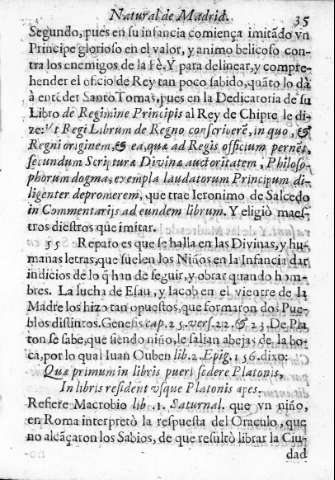 Natural de Madrid.
35
Segundo, pues en su infancia comiença imitãdo vn
Principe glorioso en el valor, y animo belicoso con-
tra los enemigos de la Fè. Y para delinear, y compre-
hender el oficio de Rey tan poco sabido, quãto lo dà
à entẽder Santo Tomas, pues en la Dedicatoria de su
Libro de Regimine Principis al Rey de Chipre le di-
ze: Vt Regi Librum de Regno conscriberẽ, in quo, &
Regni originem, & ea, quæ ad Regis officium pernẽt
secundum Scripturæ Divinæ auctoritatem, Philoso-
phorum dogma, exempla laudatorum Principum di-
ligenter depromerem, que trae Ieronimo de Salcedo
in Commentarijs ad eundem librum. Y eligiò maes-
tros diestros que imitar.
35 Reparo es que se halla en las Divinas, y hu-
manas letras, que suelen los Niños en la Infancia dar
indicios de lo q̃ han de seguir, y obrar quando hom-
bres. La lucha de Esau, y Iacob en el vientre de la
Madre los hizo tan opuestos, que formaron dos Pue-
blos distintos. Genesis cap. 25. vers. 22. & 23. De Pla-
ton se sabe, que siendo niño, le salian abejas de la bo-
ca, por lo qual Iuan Ouben lib. 2. Epig. 156. dixo:
Quæ primum in libris pueri sedere Platonis,
In libris resident vsque Platonis apes.
Refiere Macrobio lib. 1. Saturnal. que vn niño,
en Roma interpretò la respuesta del Oraculo, que
no alcãçaron los Sabios, de que resultò librar la Ciu-
dad